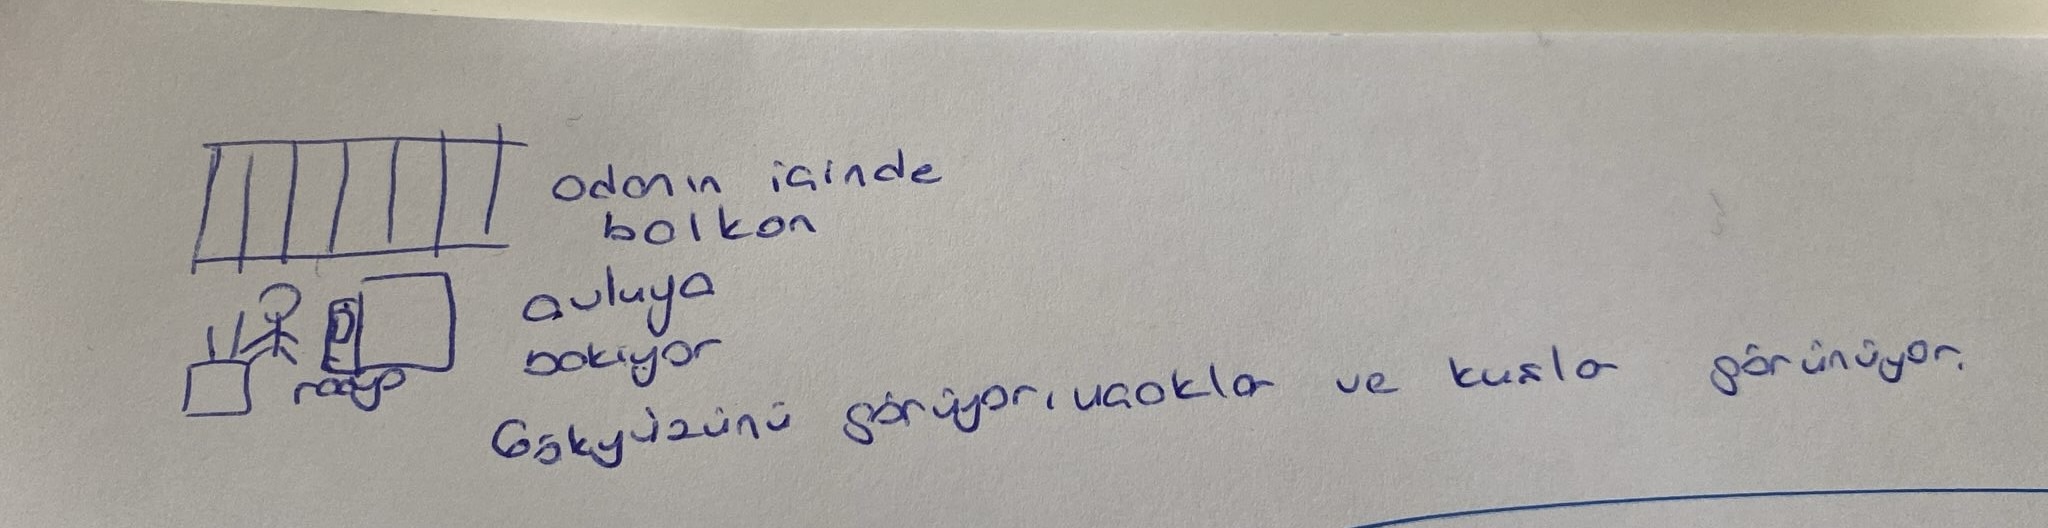 odanın içinde
balkon
avluya
bakıyor
radyo
Gökyüzünü görüyor, uçaklar ve kuşlar görünüyor.